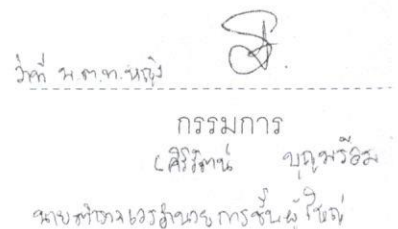 ว่าที่ พ.ต.ท.หญิง
กรรมการ
(ศิริรัตน์ บุญพร้อม
นายตำรวจเวรอำนวยการชั้นผู้ใหญ่